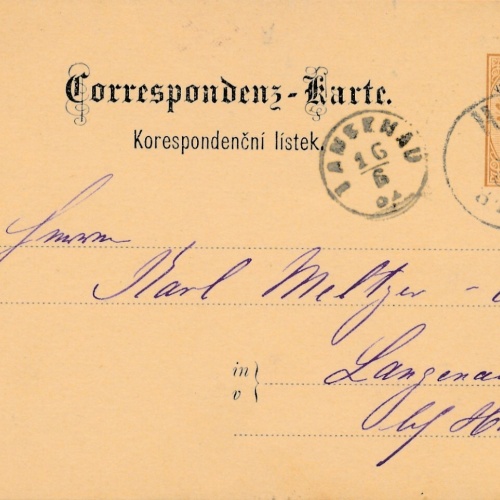 Correspondenz-Karte.
Korespondenční lístek.
LANGENAU
16/6
Herrn
Karl Meltzer -
in
v
Langenau
b/ H